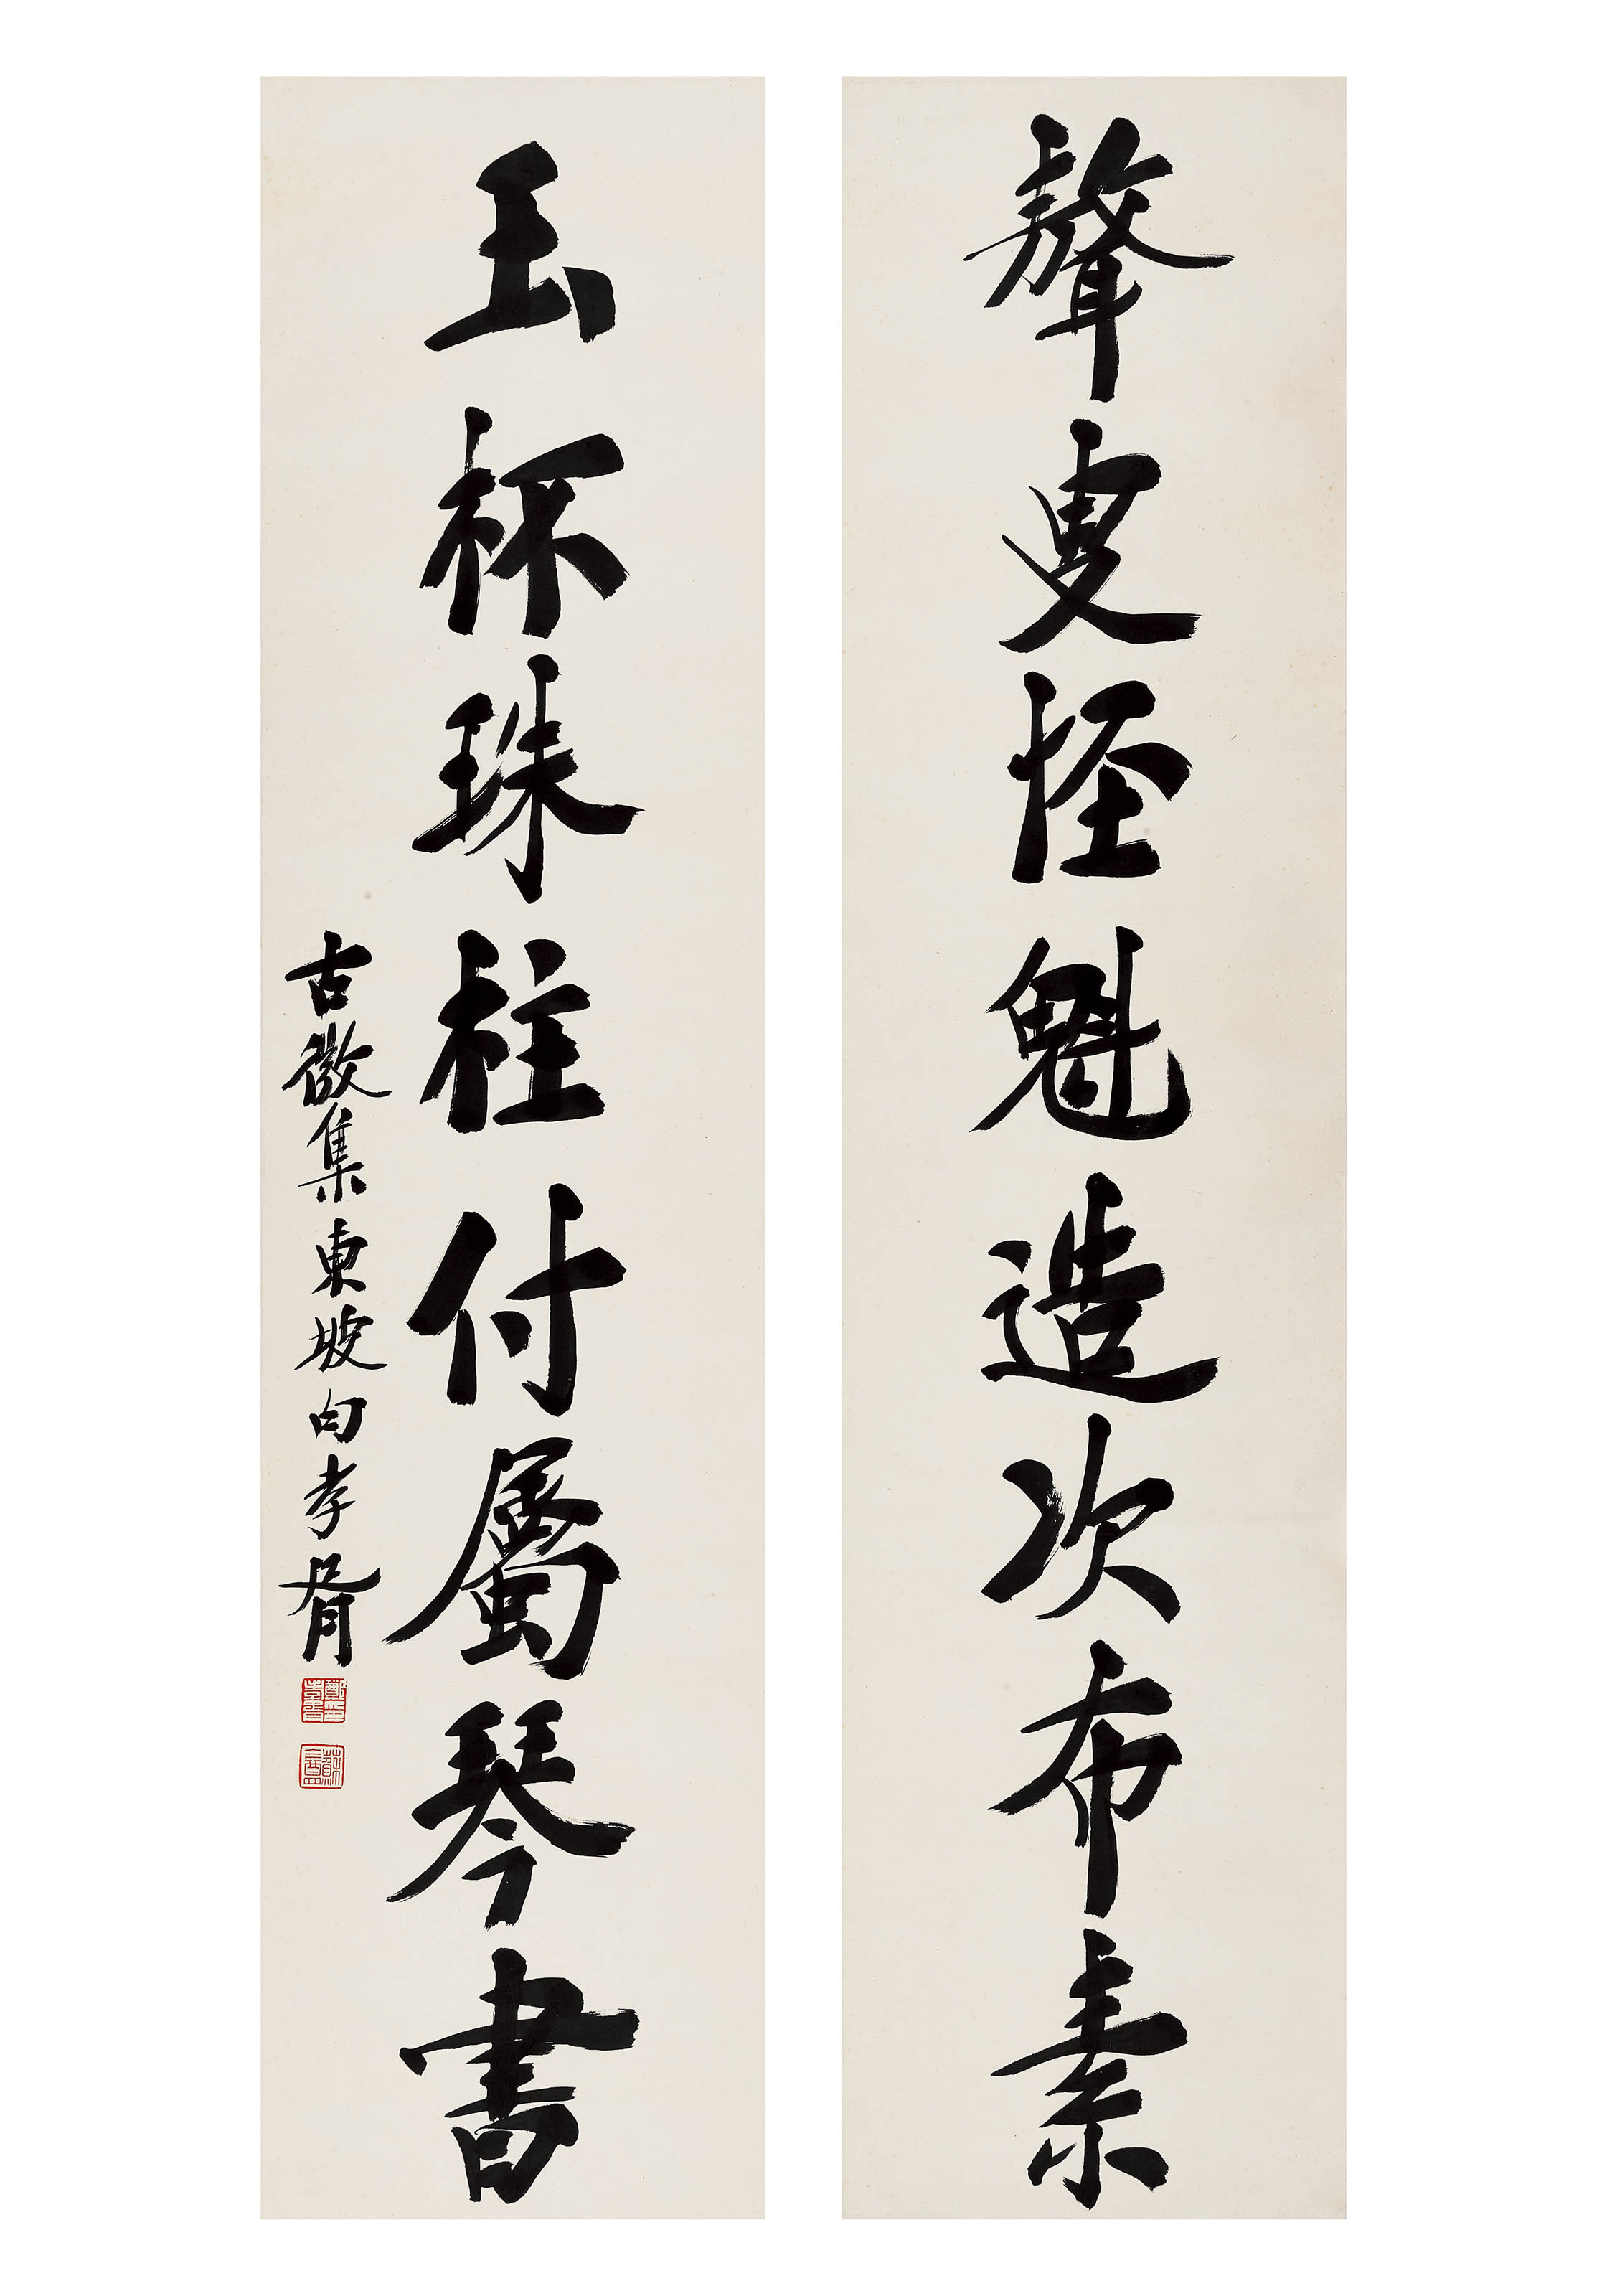 聱叟怪魁造次布素
玉杯珠柱付屬琴書
古微集東坡句孝胥
鄭印孝胥
蘇盦